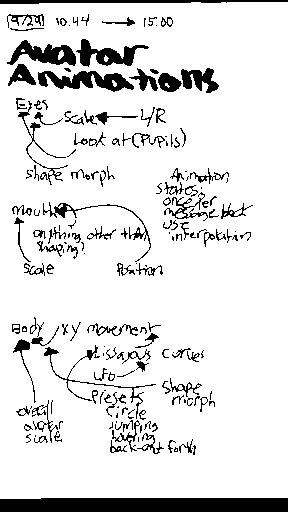 9/29 10.44 → 15.00
Avatar
Animations
Eyes
Scale ← L/R
Look at (Pupils)
shape morph
Animation
states:
once per
message block
use
interpolation
mouth
anything other than
shaping?
Scale
Position
Body
XY movement
Lissajous curves
LFO
Shape
morph
Presets
circle
jumping
hovering
back-and forth
overall
avatar
scale